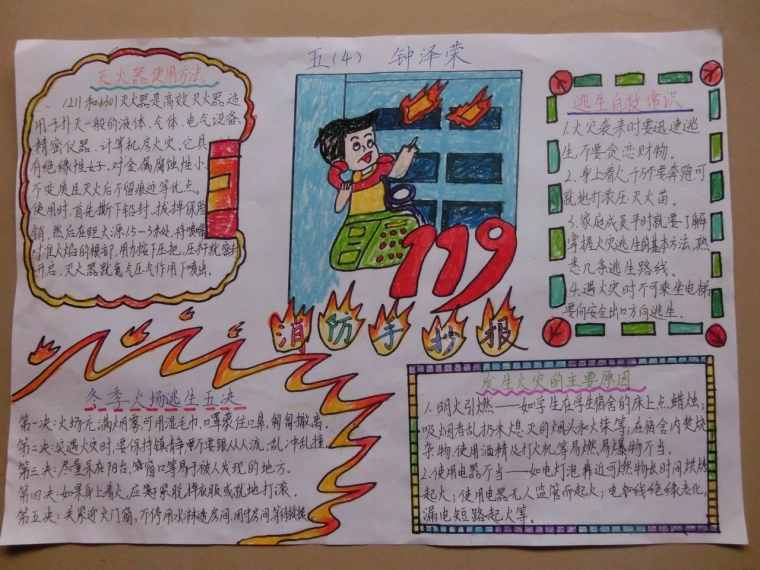 五(4) 钟泽荣
灭火器使用方法
1211和1301灭火器是高效灭火器,适
用于扑灭一般的液体、气体、电气设备、
精密仪器、计算机房火灾。它具
有绝缘性好、对金属腐蚀性小、
不变质且灭火后不留痕迹等优点。
使用时,首先撕下铅封,拔掉保险
销,然后在距火源1.5~3米处,将喷嘴
对准火焰的根部,用力按下压把,压杆就
开启,灭火器就氮气压力作用下喷出。
119
消防手抄报
逃生自救常识
1.火灾袭来时要迅速逃
生,不要贪恋财物。
2.身上着火,千万不要奔跑,可
就地打滚压灭火苗。
3.家庭成员平时就要了解
掌握火灾逃生的基本方法,熟
悉几条逃生路线。
4.遇火灾时不可乘坐电梯,
要向安全出口方向逃生。
冬季火场逃生五决
第一决:火场充满烟雾可用湿毛巾、口罩蒙住口鼻,匍匐撤离。
第二决:突遇火灾时,要保持镇静,不要跟从人流、乱冲乱撞。
第三决:尽量呆在阳台、窗口等易于被人发现的地方。
第四决:如果身上着火,应赶紧脱掉衣服或就地打滚。
第五决:关紧迎火门窗,不停用水淋透房间,固守房间等待救援。
发生火灾的主要原因
1.明火引燃——如学生在学生宿舍的床上点蜡烛;
吸烟者乱扔未熄灭的烟头和火柴等;在宿舍内焚烧
杂物;使用酒精及打火机等易燃、易爆物不当。
2.使用电器不当——如电灯泡靠近可燃物长时间烘烤
起火;使用电器无人监管而起火;电线绝缘老化,
漏电短路起火等。